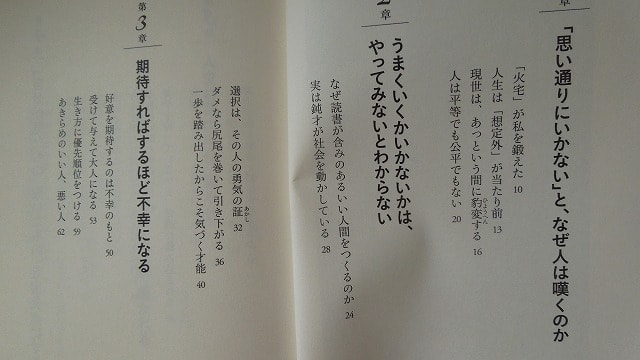 章
「思い通りにいかない」と、なぜ人は嘆くのか
「火宅」が私を鍛えた 10
人生は「想定外」が当たり前 13
現世は、あっという間に豹変する 16
ひょうへん
人は平等でも公平でもない 20
2
章
うまくいくかいかないかは、
やってみないとわからない
なぜ読書が含みのあるいい人間をつくるのか 24
実は鈍才が社会を動かしている 28
選択は、その人の勇気の証 32
あかし
ダメなら尻尾を巻いて引き下がる 36
一歩を踏み出したからこそ気づく才能 40
第3章
期待すればするほど不幸になる
好意を期待するのは不幸のもと 50
受けて与えて大人になる 53
生き方に優先順位をつける 59
あきらめのいい人、悪い人 62